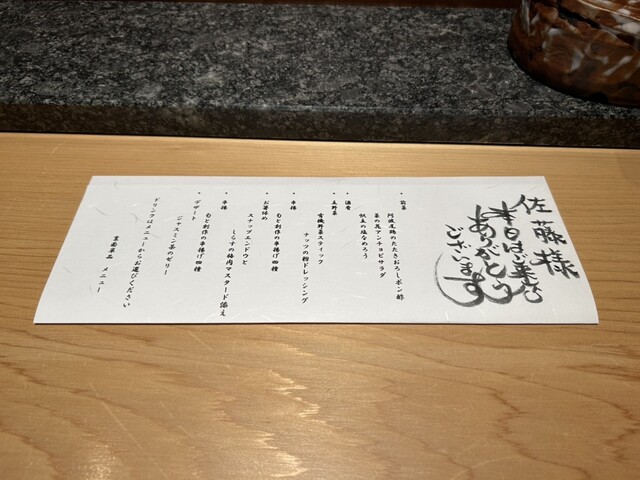 佐藤様
本日はご来店
ありがとう
ございます
・前菜
阿波尾鶏のたたきおろしポン酢
菜の花アンチョビサラダ
・酒肴
・生野菜
有機野菜スティック
ナッツの粉ドレッシング
・串揚
旬と創作の串揚げ四種
・お箸休め
スナップエンドウと
しらすの梅肉マスタード添え
・串揚
旬と創作の串揚げ四種
・デザート
ジャスミン茶のゼリー
ドリンクはメニューからお選びください
メニュー